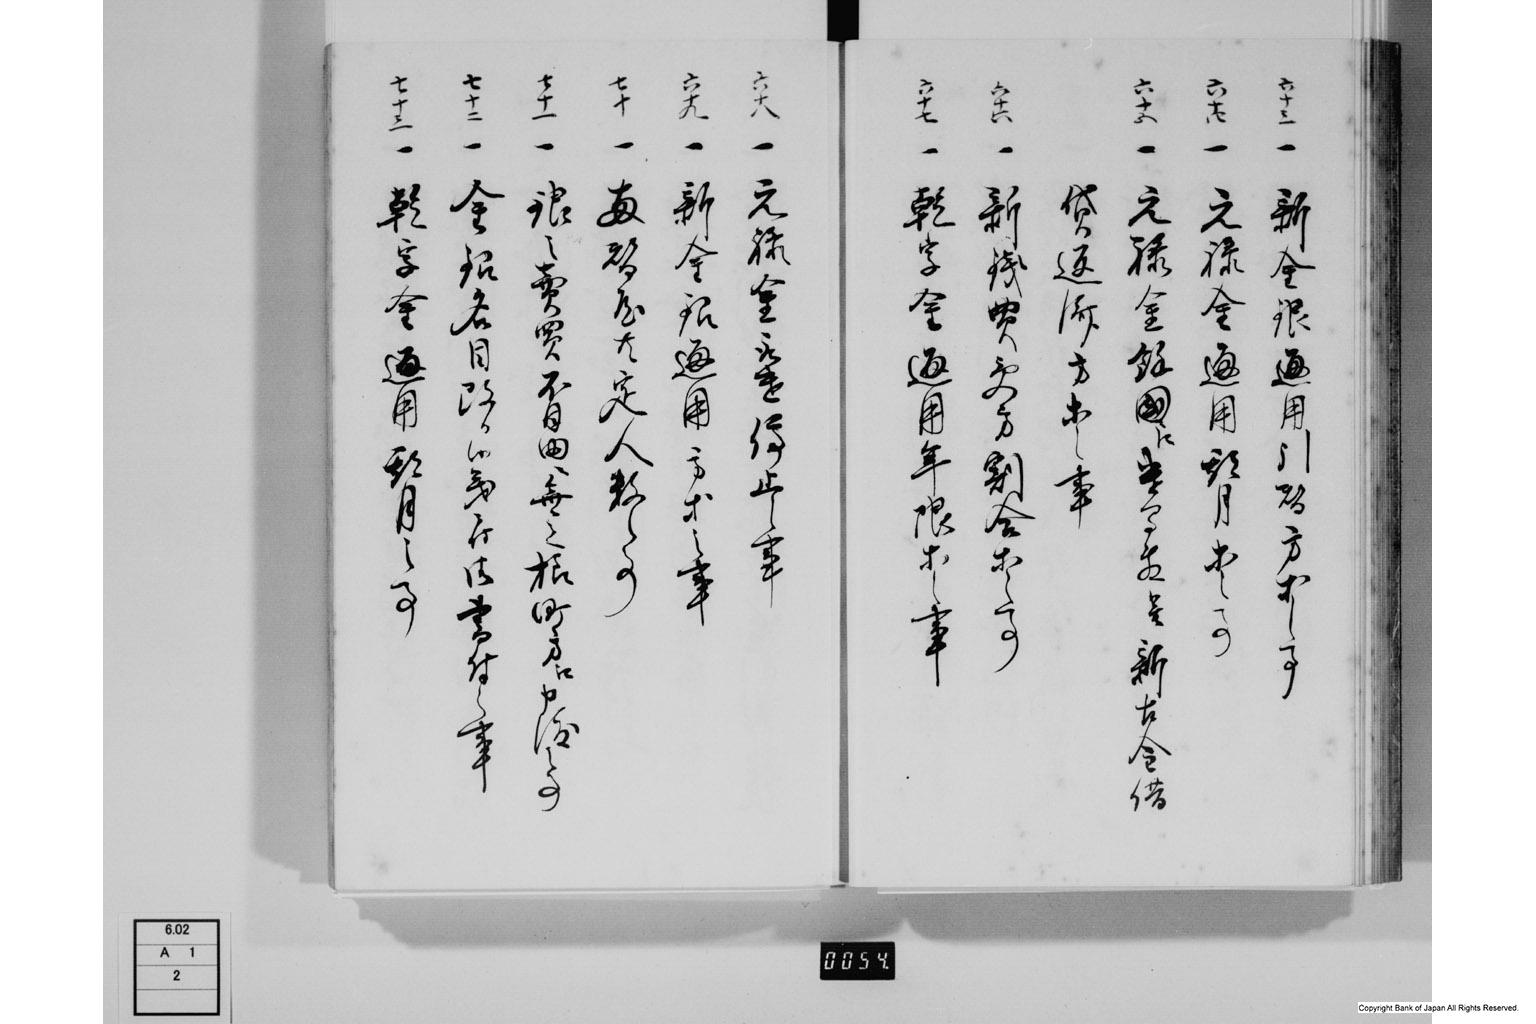 六十三 一 新金銀通用引替方等之事
六十四 一 元禄金通用期月等之事
六十五 一 元禄金銀国 新古金借
貸返済方等之事
六十六 一 新銭買 方割合等之事
六十七 一 乾字金通用年限等之事
六十八 一 元禄金 停止之事
六十九 一 新金銀通用方等之事
七十 一 両替屋共定人数之事
七十一 一 銀之売買不自由無之様町方江申渡之事
七十二 一 金銀名目改 書付之事
七十三 一 乾字金通用期月之事
6.02
A 1
2
0054
Copyright Bank of Japan All Rights Reserved.